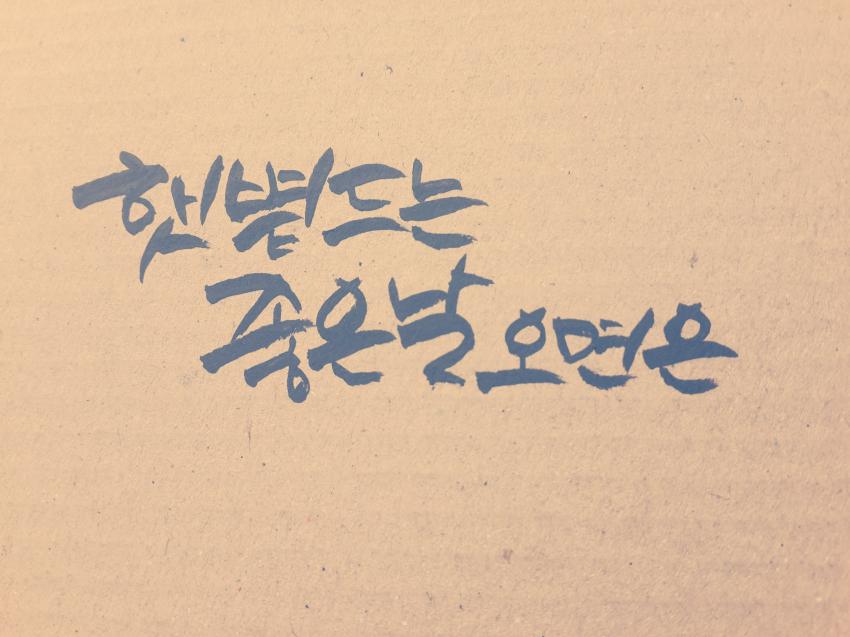 햇볕드는
좋은날 오면은